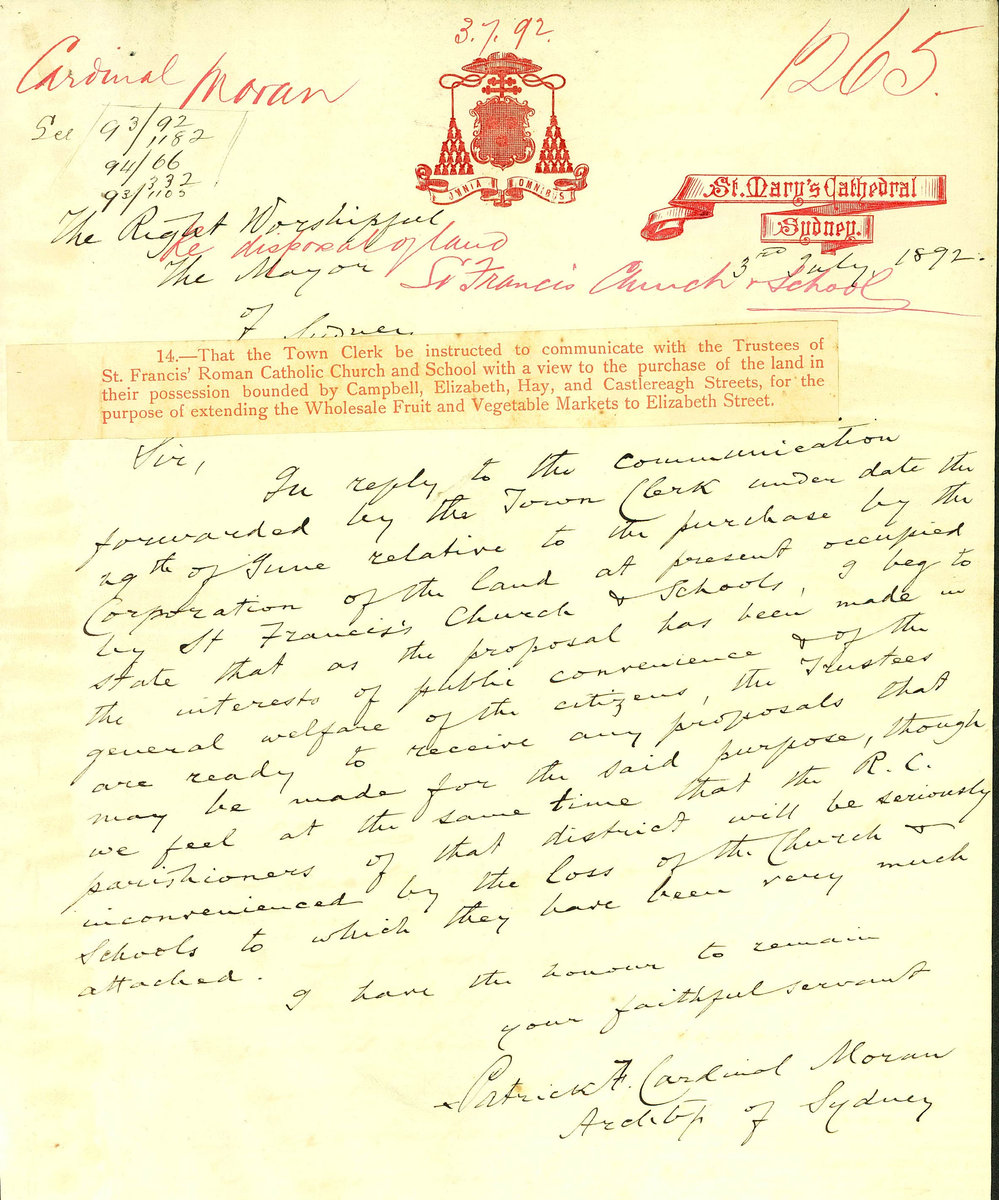 3.7.92.
Cardinal Moran
1265.
See 93/92
1182
94/66
332
93/1105
OMNIA OMNIBUS
St. Mary's Cathedral
Sydney.
3rd July, 1892.
The Right Worshipful
Re disposal of land
The Mayor
St Francis Church & School
of
Sydney
14.—That the Town Clerk be instructed to communicate with the Trustees of
St. Francis' Roman Catholic Church and School with a view to the purchase of the land in
their possession bounded by Campbell, Elizabeth, Hay, and Castlereagh Streets, for the
purpose of extending the Wholesale Fruit and Vegetable Markets to Elizabeth Street.
Sir,
In reply to the communication
forwarded by the Town Clerk under date the
29th of June relative to the purchase by the
Corporation of the land at present occupied
by St Francis's Church & Schools, I beg to
state that as the proposal has been made in
the interests of public convenience & of the
general welfare of the citizens, the Trustees
are ready to receive any proposals that
may be made for the said purpose, though
we feel at the same time that the R. C.
parishioners of that district will be seriously
inconvenienced by the loss of the Church &
Schools to which they have been very much
attached.
I have the honour to remain
your faithful servant
Patrick F. Cardinal Moran
Archbp of Sydney